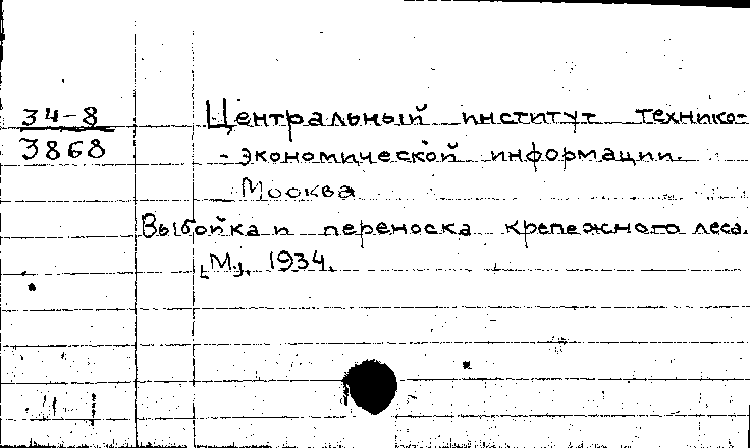 34-8
3868
Центральный институт технико-
- экономической информации.
Москва
Выбойка и переноска крепежного леса.
[М], 1934.